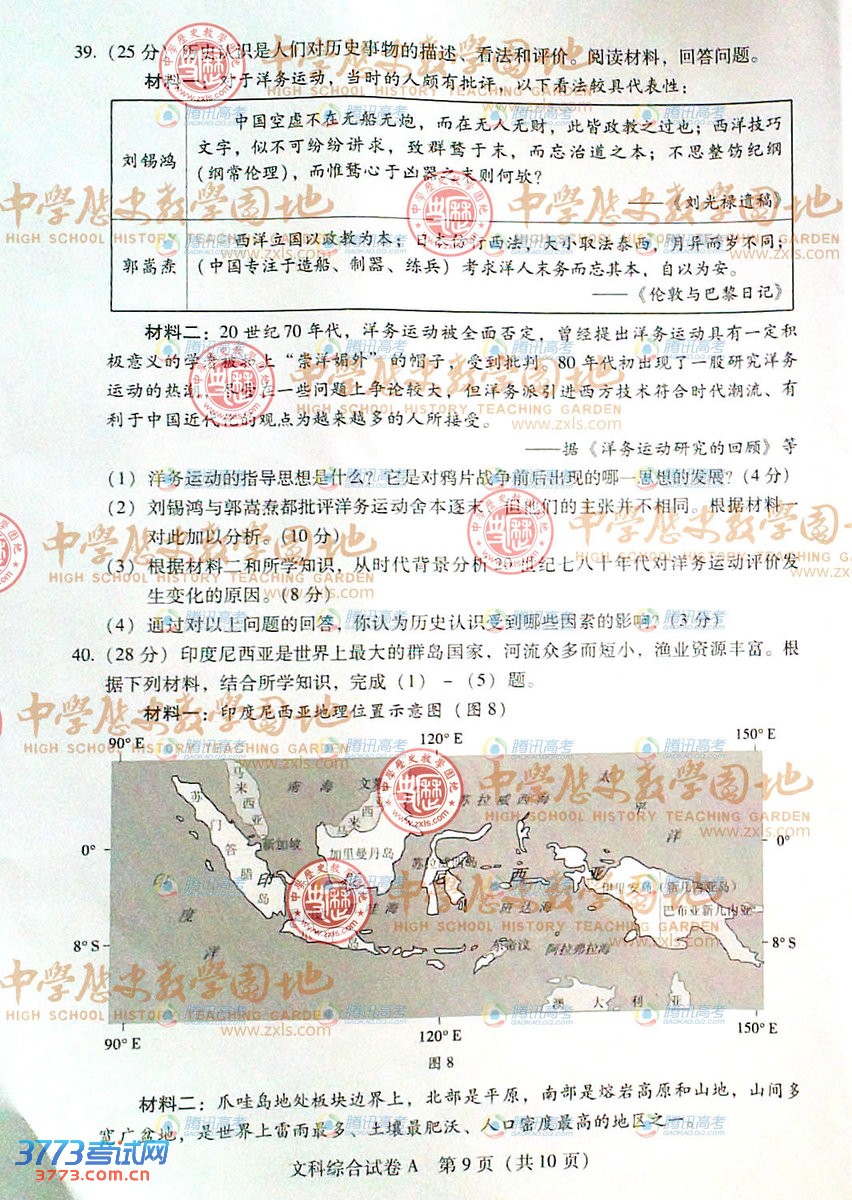 39.（25 分）历史认识是人们对历史事物的描述、看法和评价。阅读材料，回答问题。
材料一：对于洋务运动，当时的人颇有批评，以下看法较具代表性：
刘锡鸿
中国空虚不在无船无炮，而在无人无财，此皆政教之过也；西洋技巧
文字，似不可纷纷讲求，致群骛于末，而忘治道之本；不思整饬纪纲
（纲常伦理），而惟骛心于凶器之末则何欤？
——《刘光禄遗稿》
郭嵩焘
西洋立国以政教为本；日本仿行西法，大小取法泰西，月异而岁不同；
（中国专注于造船、制器、练兵）考求洋人末务而忘其本，自以为安。
——《伦敦与巴黎日记》
材料二：20 世纪 70 年代，洋务运动被全面否定，曾经提出洋务运动具有一定积
极意义的学者被扣上“崇洋媚外”的帽子，受到批判。80 年代初出现了一股研究洋务
运动的热潮，在一些问题上争论较大，但洋务派引进西方技术符合时代潮流、有
利于中国近代化的观点为越来越多的人所接受。
——据《洋务运动研究的回顾》等
（1）洋务运动的指导思想是什么？它是对鸦片战争前后出现的哪一思想的发展？（4 分）
（2）刘锡鸿与郭嵩焘都批评洋务运动舍本逐末，但他们的主张并不相同。根据材料一
对此加以分析。（10 分）
（3）根据材料二和所学知识，从时代背景分析 20 世纪七八十年代对洋务运动评价发
生变化的原因。（8 分）
（4）通过对以上问题的回答，你认为历史认识受到哪些因素的影响？（3 分）
40.（28 分）印度尼西亚是世界上最大的群岛国家，河流众多而短小，渔业资源丰富。根
据下列材料，结合所学知识，完成（1）－（5）题。
材料一：印度尼西亚地理位置示意图（图 8）
90° E 120° E 150° E
马来西亚
南海
文莱
苏拉威西海
太平洋
苏门答腊岛
新加坡
马来西
加里曼丹岛
苏拉威西岛
0°
印度洋
印 西 亚
伊里安岛（新几内亚岛）
巴布亚新几内亚
班达海
8° S 8° S
东帝汶
阿拉弗拉海
澳大利亚
90° E 120° E 150° E
图 8
材料二：爪哇岛地处板块边界上，北部是平原，南部是熔岩高原和山地，山间多
宽广盆地，是世界上雷雨最多、土壤最肥沃、人口密度最高的地区之一。
文科综合试卷 A 第 9 页（共 10 页）
中學歷史教學園地
HIGH SCHOOL HISTORY TEACHING GARDEN
www.zxls.com
腾讯高考
GAOKAO.QQ.COM
3773考试网
3773.com.cn